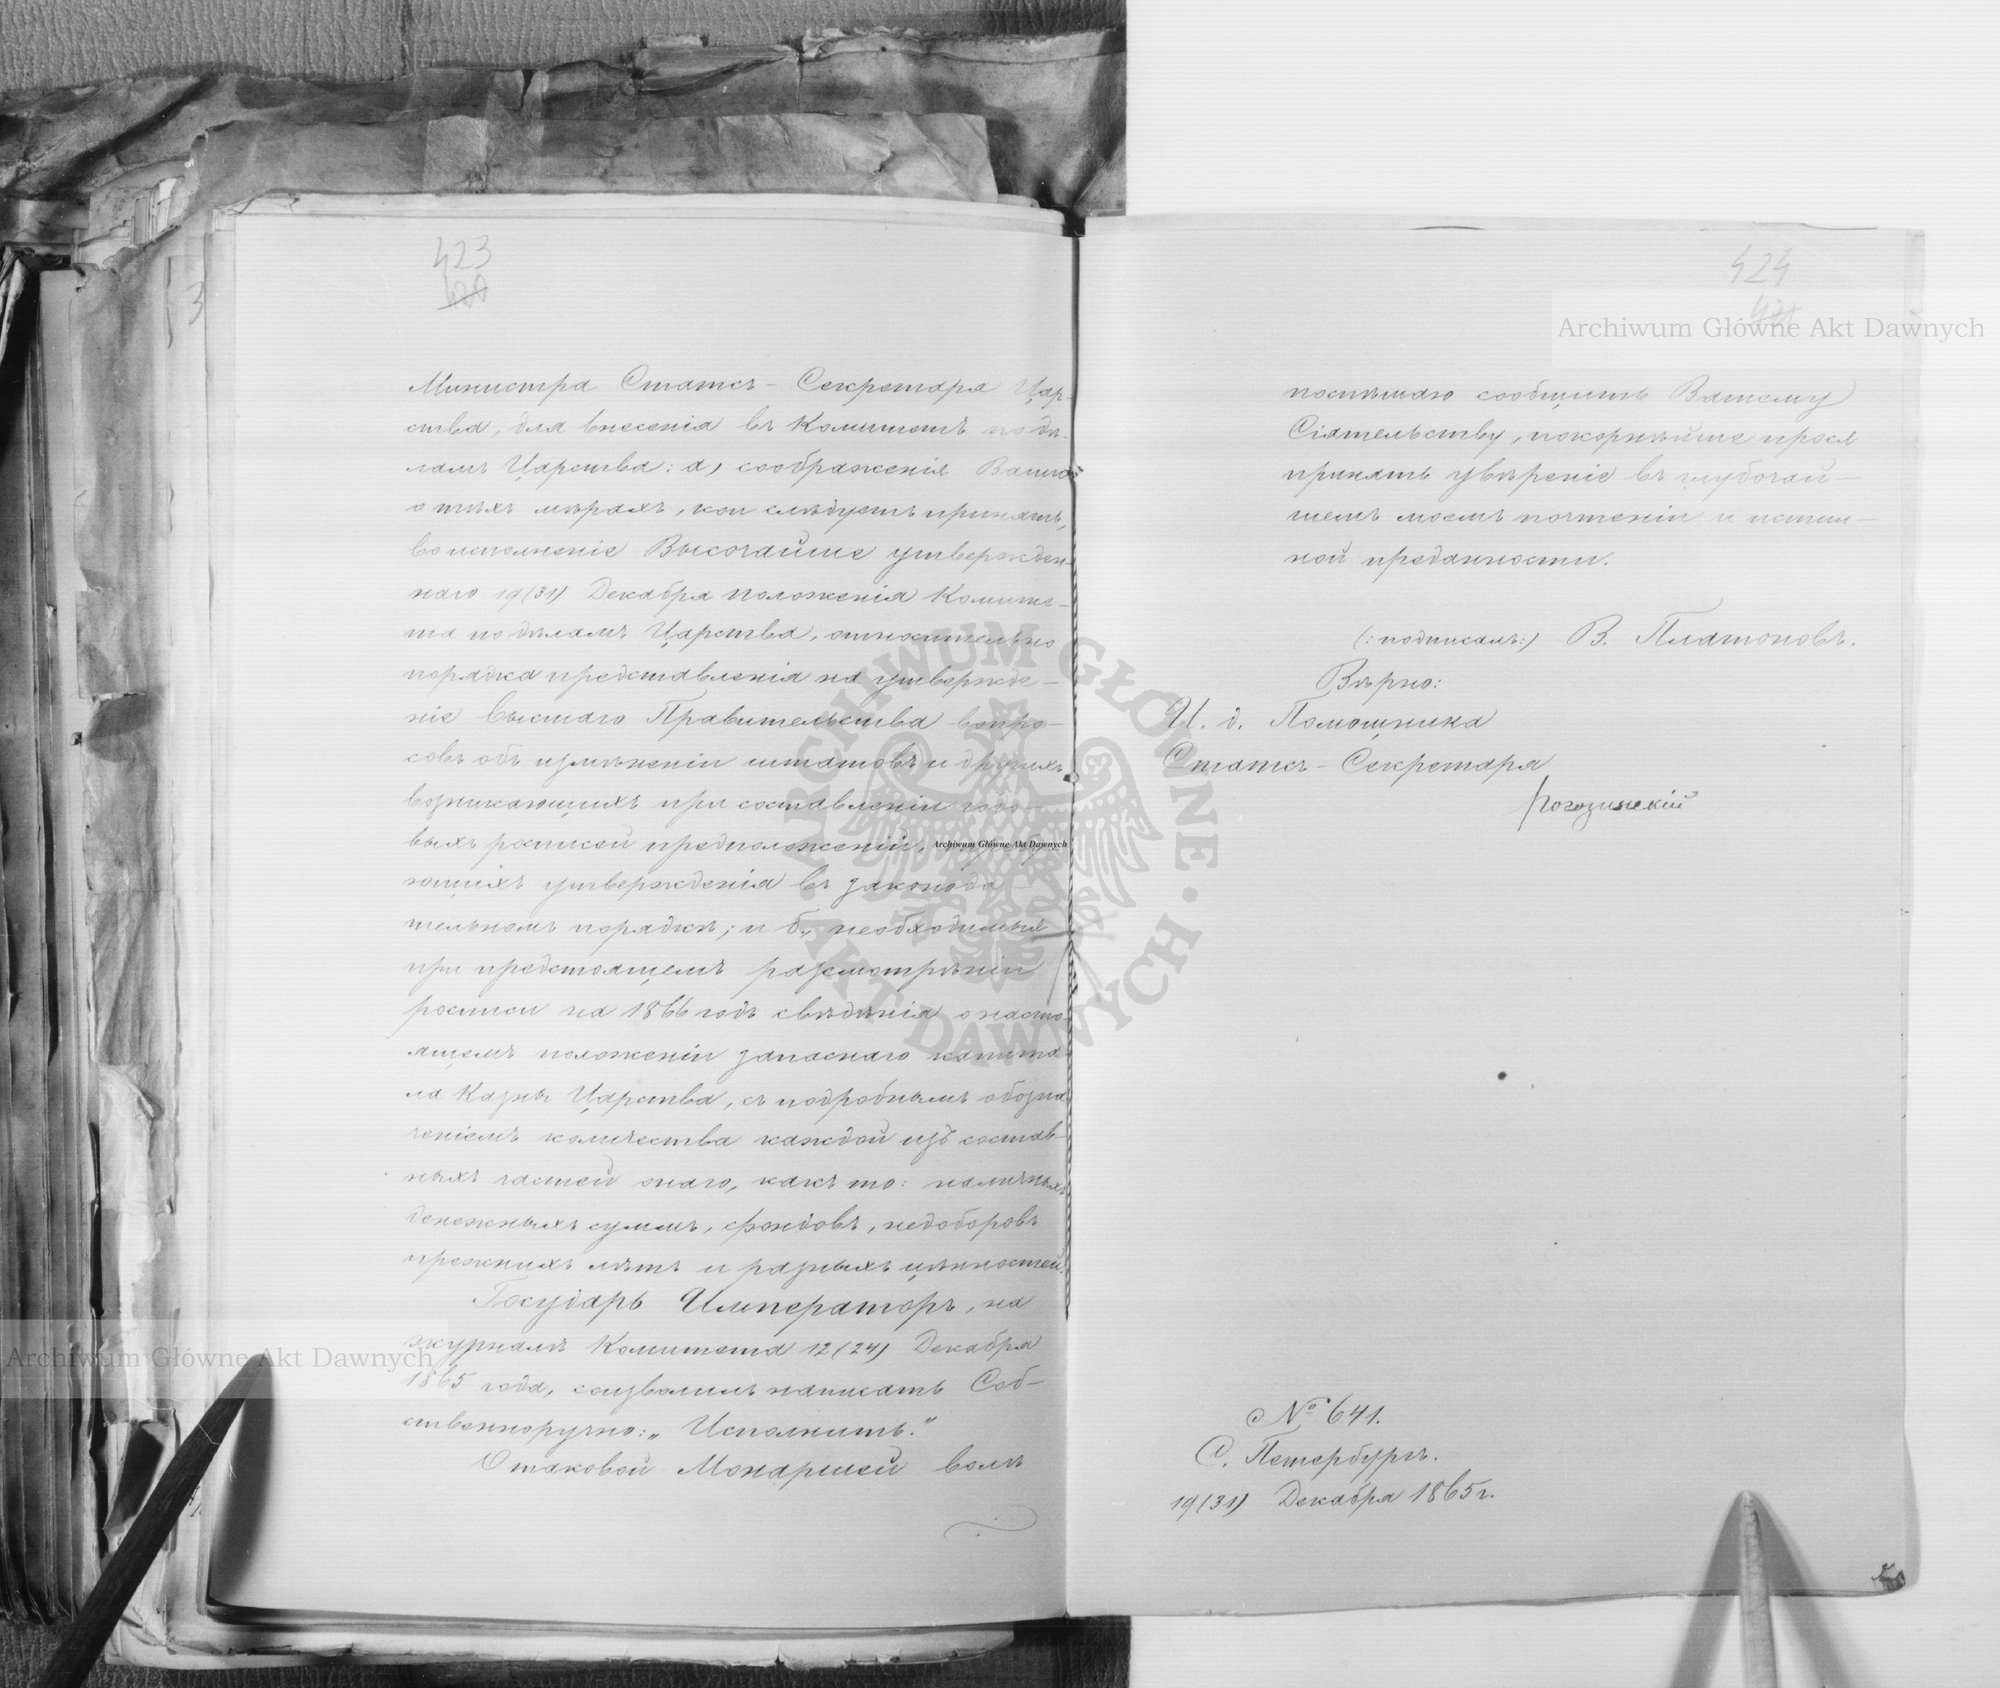 423
Министра Статсъ-Секретаря Цар-
ства, для внесенія въ Комитетъ по дѣ-
ламъ Царства: а) соображенія Вашего
о тѣхъ мѣрахъ, кои слѣдуетъ принять,
во исполненіе Высочайше утвержден-
наго 19(31) Декабря положенія Комите-
та по дѣламъ Царства, относительно
порядка представленія на утвержде-
ніе высшаго Правительства вопро-
совъ объ измѣненіи штатовъ и другихъ
возникающихъ при составленіи годо-
выхъ росписей предположеній,
ющихъ утвержденія въ законода-
тельномъ порядкѣ; и б., необходимыя
при предстоящемъ разсмотрѣніи
росписи на 1866 годъ свѣдѣнія о насто-
ящемъ положеніи запаснаго капита-
ла Казны Царства, съ подробнымъ обозна-
ченіемъ количества каждой изъ состав-
ныхъ частей онаго, какъ то: наличныхъ
денежныхъ суммъ, фондовъ, недоборовъ
прежнихъ лѣтъ и разныхъ цѣнностей.
Государь Императоръ, на
журналѣ Комитета 12(24) Декабря
1865 года, соизволилъ написать Соб-
ственноручно: „Исполнить."
О таковой Монаршей волѣ
424
поспѣшаю сообщить Вашему
Сіятельству, покорнѣйше прося
принять увѣреніе въ глубочай-
шемъ моемъ почтеніи и истин-
ной преданности.
(:подписалъ:) В. Платоновъ.
Вѣрно:
И. д. Помощника
Статсъ-Секретаря
Рогозинскій
№ 641.
С. Петербургъ.
19(31) Декабря 1865 г.
Archiwum Główne Akt Dawnych
Archiwum Główne Akt Dawnych
Archiwum Główne Akt Dawnych
ARCHIWUM GŁÓWNE · AKT DAWNYCH ·